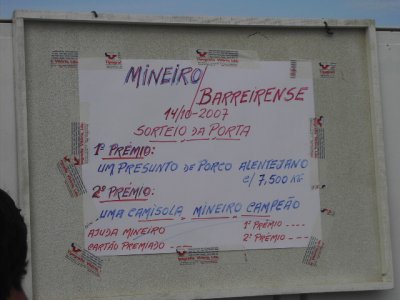 MINEIRO/
BARREIRENSE
14/10-2007
SORTEIO DA PORTA
1º PRÉMIO:
UM PRESUNTO DE PORCO ALENTEJANO
C/ 7,500 KG.
2º PRÉMIO:
UMA CAMISOLA MINEIRO CAMPEÃO
AJUDA MINEIRO
1º PRÉMIO ----
CARTÃO PREMIADO ----
2º PRÉMIO ----